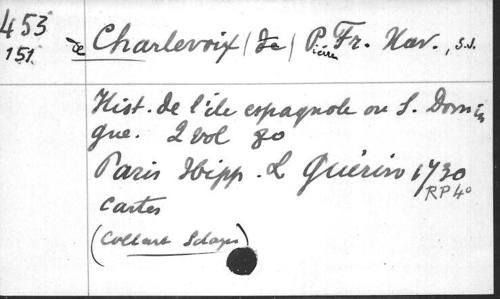 453
151
de Charlevoix (de) Pierre Fr. Xav., S.J.
Hist. de l'ile espagnole ou S. Domin
gue. 2 vol 80
Paris Hipp. L Guérin 1730
RP 4°
Cartes
(Collart